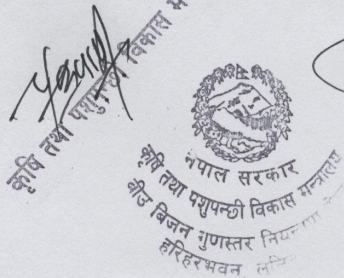 कृषि तथा पशुपन्छी विकास
नेपाल सरकार
कृषि तथा पशुपन्छी विकास मन्त्रालय
बीउ बिजन गुणस्तर नियन्त्रण
हरिहरभवन